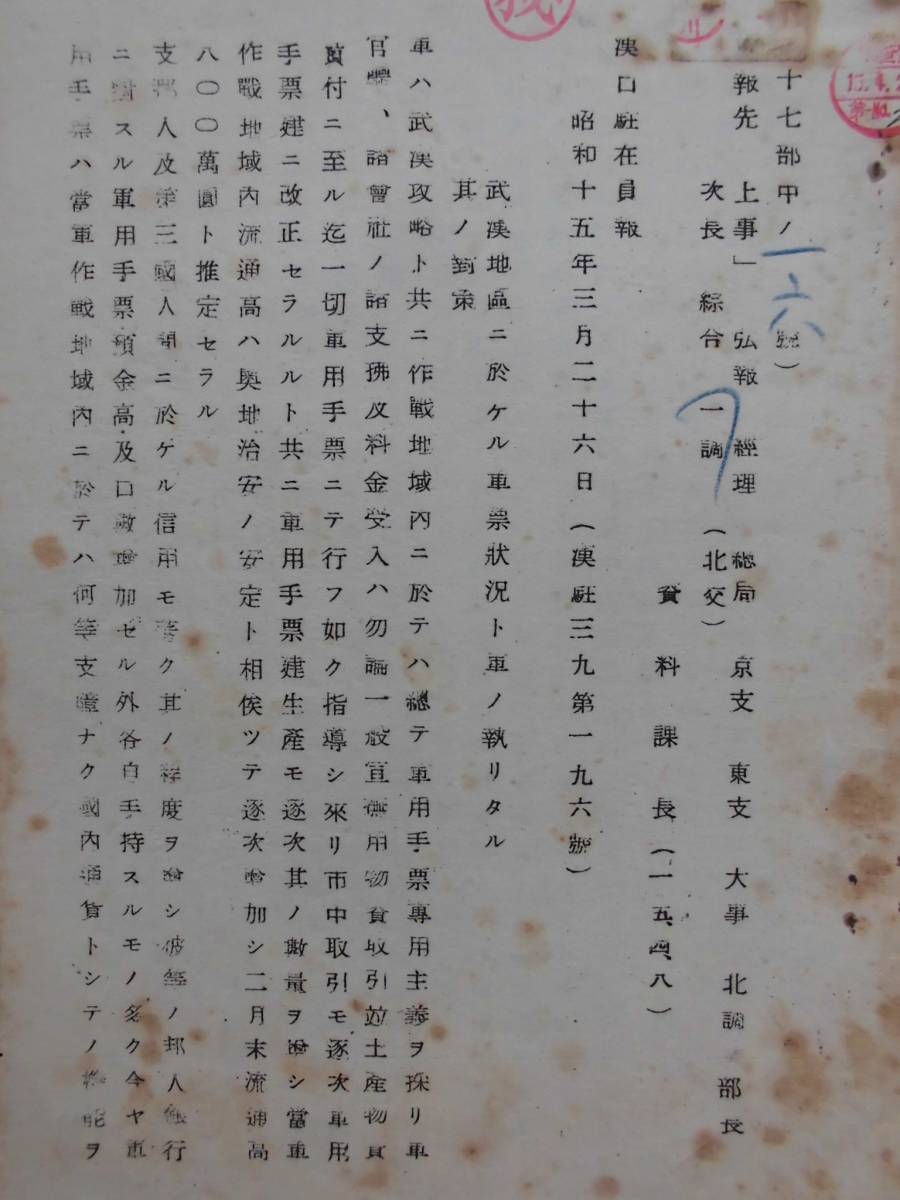 十七部中ノ一六號)
報先 上事」 弘報 經理 總局 京支 東支 大事 北調 部長
次長 綜合 一調 (北交)
資料課長(一五、四、八)
漢口駐在員報
昭和十五年三月二十六日(漢駐三九第一九六號)
武漢地區ニ於ケル軍票狀況ト軍ノ執リタル
其ノ對策
軍ハ武漢攻略ト共ニ作戰地域內ニ於テハ總テ軍用手票專用主義ヲ採リ軍
官輝、諸會社ノ諸支拂及料金受入ハ勿論一般宣撫用物資取引竝土産物買
買付ニ至ル迄一切軍用手票ニテ行フ如ク指導シ來リ市中取引モ逐次軍用
手票建ニ改正セラルルト共ニ軍用手票建生產モ逐次其ノ數量ヲ增シ當軍
作戰地域內流通高ハ奧地治安ノ安定ト相俟ツテ逐次增加シ二月末流通高
八〇〇萬圓ト推定セラル
支那人及第三國人間ニ於ケル信用モ著ク其ノ程度ヲ增シ彼等ノ邦人銀行
ニ對スル軍用手票預金高及口數增加セル外各自手持スルモノ多ク今ヤ軍
用手票ハ當軍作戰地域內ニ於テハ何等支障ナク國內通貨トシテノ機能ヲ
15.4.2